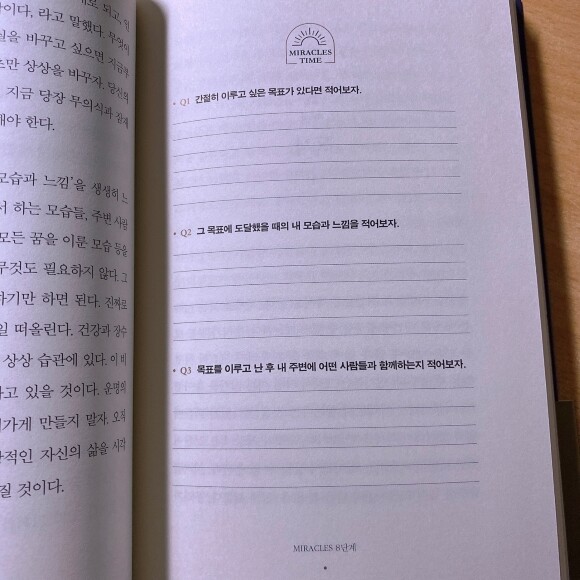 이다. 라고 말했다. 무엇이
을 바꾸고 싶으면 지금부
만 상상을 바꾸자. 당신의
지금 당장 무의식과 잠재
해야 한다.
모습과 느낌’을 생생히 느
서 하는 모습들, 주변 사람
모든 꿈을 이룬 모습 등을
무것도 필요하지 않다. 그
하기만 하면 된다. 진짜로
일 떠올린다. 건강과 장수
상상 습관에 있다. 이 비
고 있을 것이다. 운명의
가게 만들지 말자. 오직
적인 자신의 삶을 시각
질 것이다.
MIRACLES
TIME
• Q1 간절히 이루고 싶은 목표가 있다면 적어보자.
• Q2 그 목표에 도달했을 때의 내 모습과 느낌을 적어보자.
• Q3 목표를 이루고 난 후 내 주변에 어떤 사람들과 함께하는지 적어보자.
MIRACLES 8단계